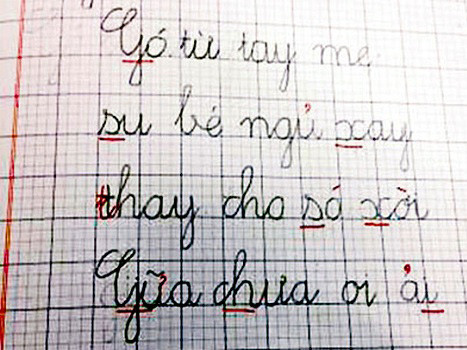 Gó từ tay mẹ
su bé ngủ xay
thay cho só xời
Gữa chưa oi ải